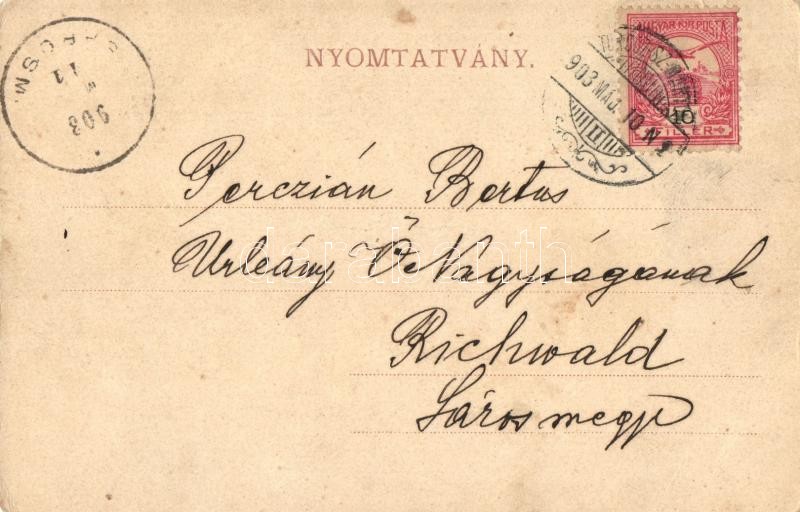 NYOMTATVÁNY.
MAGYAR KIR. POSTA
10
FILLÉR
903 MÁJ. 10 N 2
SÁROSM.
11
903
Perczián Bertus
Urleány Ő Nagyságának
Richwald
Sáros megye
darabanth